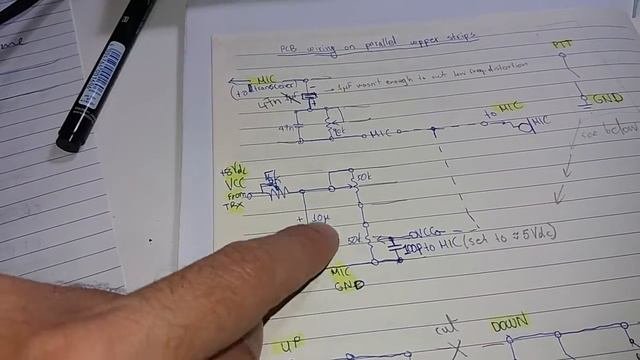 PCB wiring on parallel copper strips
MIC
(to transceiver)
1µF wasn't enough to cut low freq distortion
47n
47n
10k
MIC
to MIC
MIC
PTT
GND
see below
+8Vdc
VCC
From
TRX
50k
+ 10µ
50k
VCC
100p to MIC (set to ≈5Vdc)
MIC
GND
UP
cut
DOWN